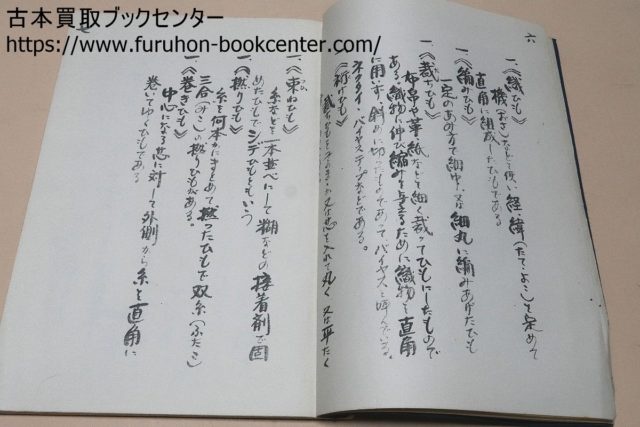 古本買取ブックセンター
https://www.furuhon-bookcenter.com/
六
一、《織ひも》
機(おさ)などを使い経・緯(たて・よこ)を定めて
直角に組織したひもである
一、《編みひも》
一定のあみ方で細巾、又は細丸に編みあげたひも
一、《裁ちひも》
布帛や革、紙などを細く裁ってひもにしたもので
ある。織物に伸び縮みを与えるために織物を直角
に用いず、斜めに切ったものであってバイヤスと呼んでいる。
ネクタイ・バイヤステープなどである。
《絎けひも》
裁ちひもを 又は芯を入れて丸く 又は平たく
一、《束ねひも》
糸などを一本並べにして糊などの接着剤で固
めたひもでシデひもともいう
《撚りひも》
糸を何本かにまとめて撚ったひもで双糸(ふたこ)
三合(みこ)の撚りひもがある。
《巻きひも》
中心になる芯に対して外側から糸を直角に
巻いてゆくひもである。